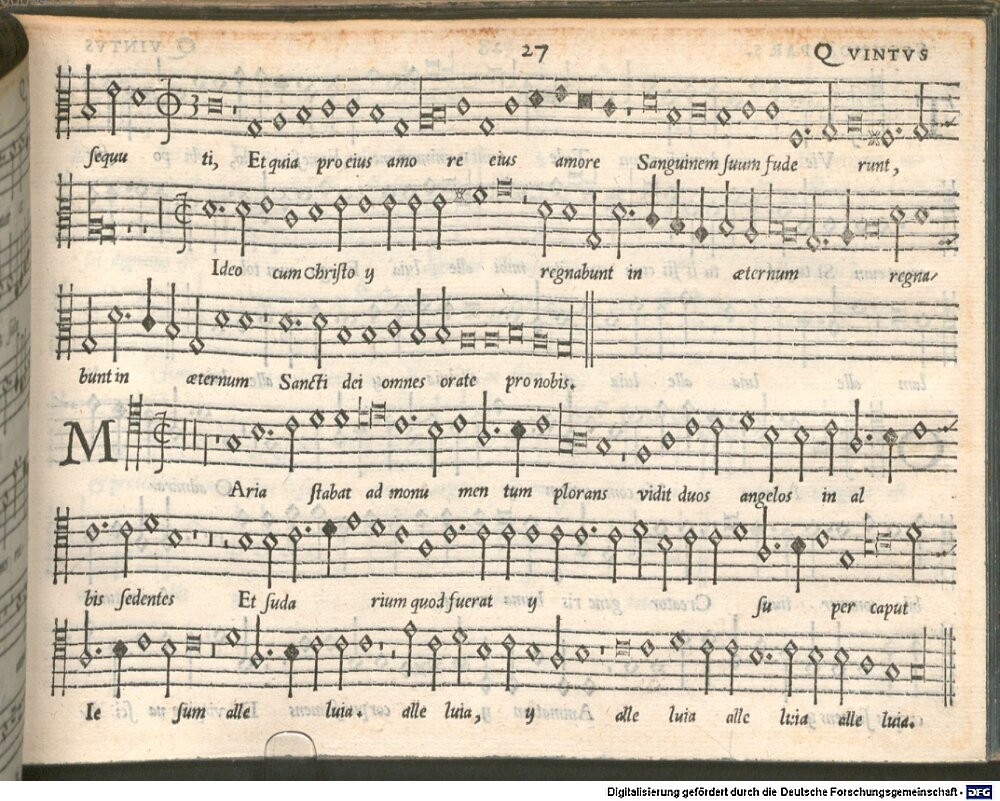 27 QVINTVS
sequu ti, Et quia pro eius amo re eius amore Sanguinem suum fude runt,
Ideo cum Christo y regnabunt in æternum regna-
bunt in æternum Sancti dei omnes orate pro nobis.
MAria stabat ad monu men tum plorans vidit duos angelos in al
bis sedentes Et suda rium quod fuerat y su per caput
Ie sum alle luia, alle luia, y alle luia alle luia alle luia.
Digitalisierung gefördert durch die Deutsche Forschungsgemeinschaft - DFG